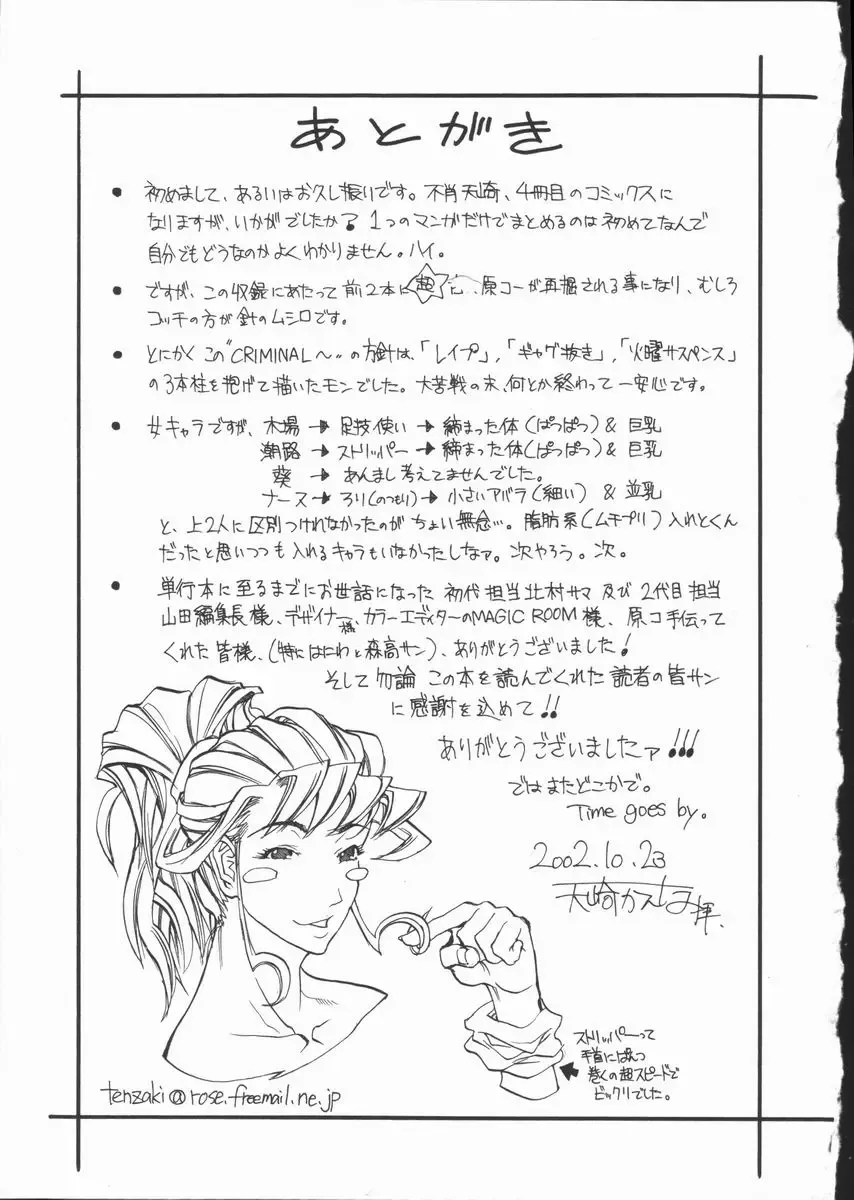 あとがき
● 初めまして、あるいはお久し振りです。不肖天崎、4冊目のコミックスに
なりますが、いかがでしたか? 1つのマンガだけでまとめるのは初めてなんで
自分でもどうなのかよくわかりません。ハイ。
● ですが、この収録にあたって前2本に 超 、原コーが再掘される事になり、むしろ
コッチの方が針のムシロです。
● とにかくこの"CRIMINAL〜"の方針は、「レイプ」,「ギャグ抜き」,「火曜サスペンス」
の3本柱を掲げて描いたモンでした。大苦戦の末、何とか終わって一安心です。
● 女キャラですが、木場→足技使い→締まった体(ぱっぱつ)& 巨乳
潮路→ストリッパー→締まった体(ぱっぱつ)& 巨乳
葵→あんまし考えてませんでした。
ナース→ろり(のつもり)→小さいアバラ(細い) & 並乳
と、上2人に区別つけれなかったのがちょい無念…。脂肪系(ムチプリ)入れとくん
だったと思いつつも入れるキャラもいなかったしなァ。次やろう。次。
● 単行本に至るまでにお世話になった 初代担当北村サマ 及び 2代目担当
山田編集長様、デザイナー様、カラーエディターのMAGIC ROOM様、原コ手伝って
くれた皆様、(特にはにわと森高サン)、ありがとうございました!
そして勿論 この本を読んでくれた読者の皆サン
に感謝を込めて!!
ありがとうございましたァ!!!
ではまたどこかで。
Time goes by.
2002.10.23
天崎かんな 拝.
ストリッパーって
手首にぱんつ
巻くの超スピードで
ビックリでした。
tenzaki@rose.freemail.ne.jp